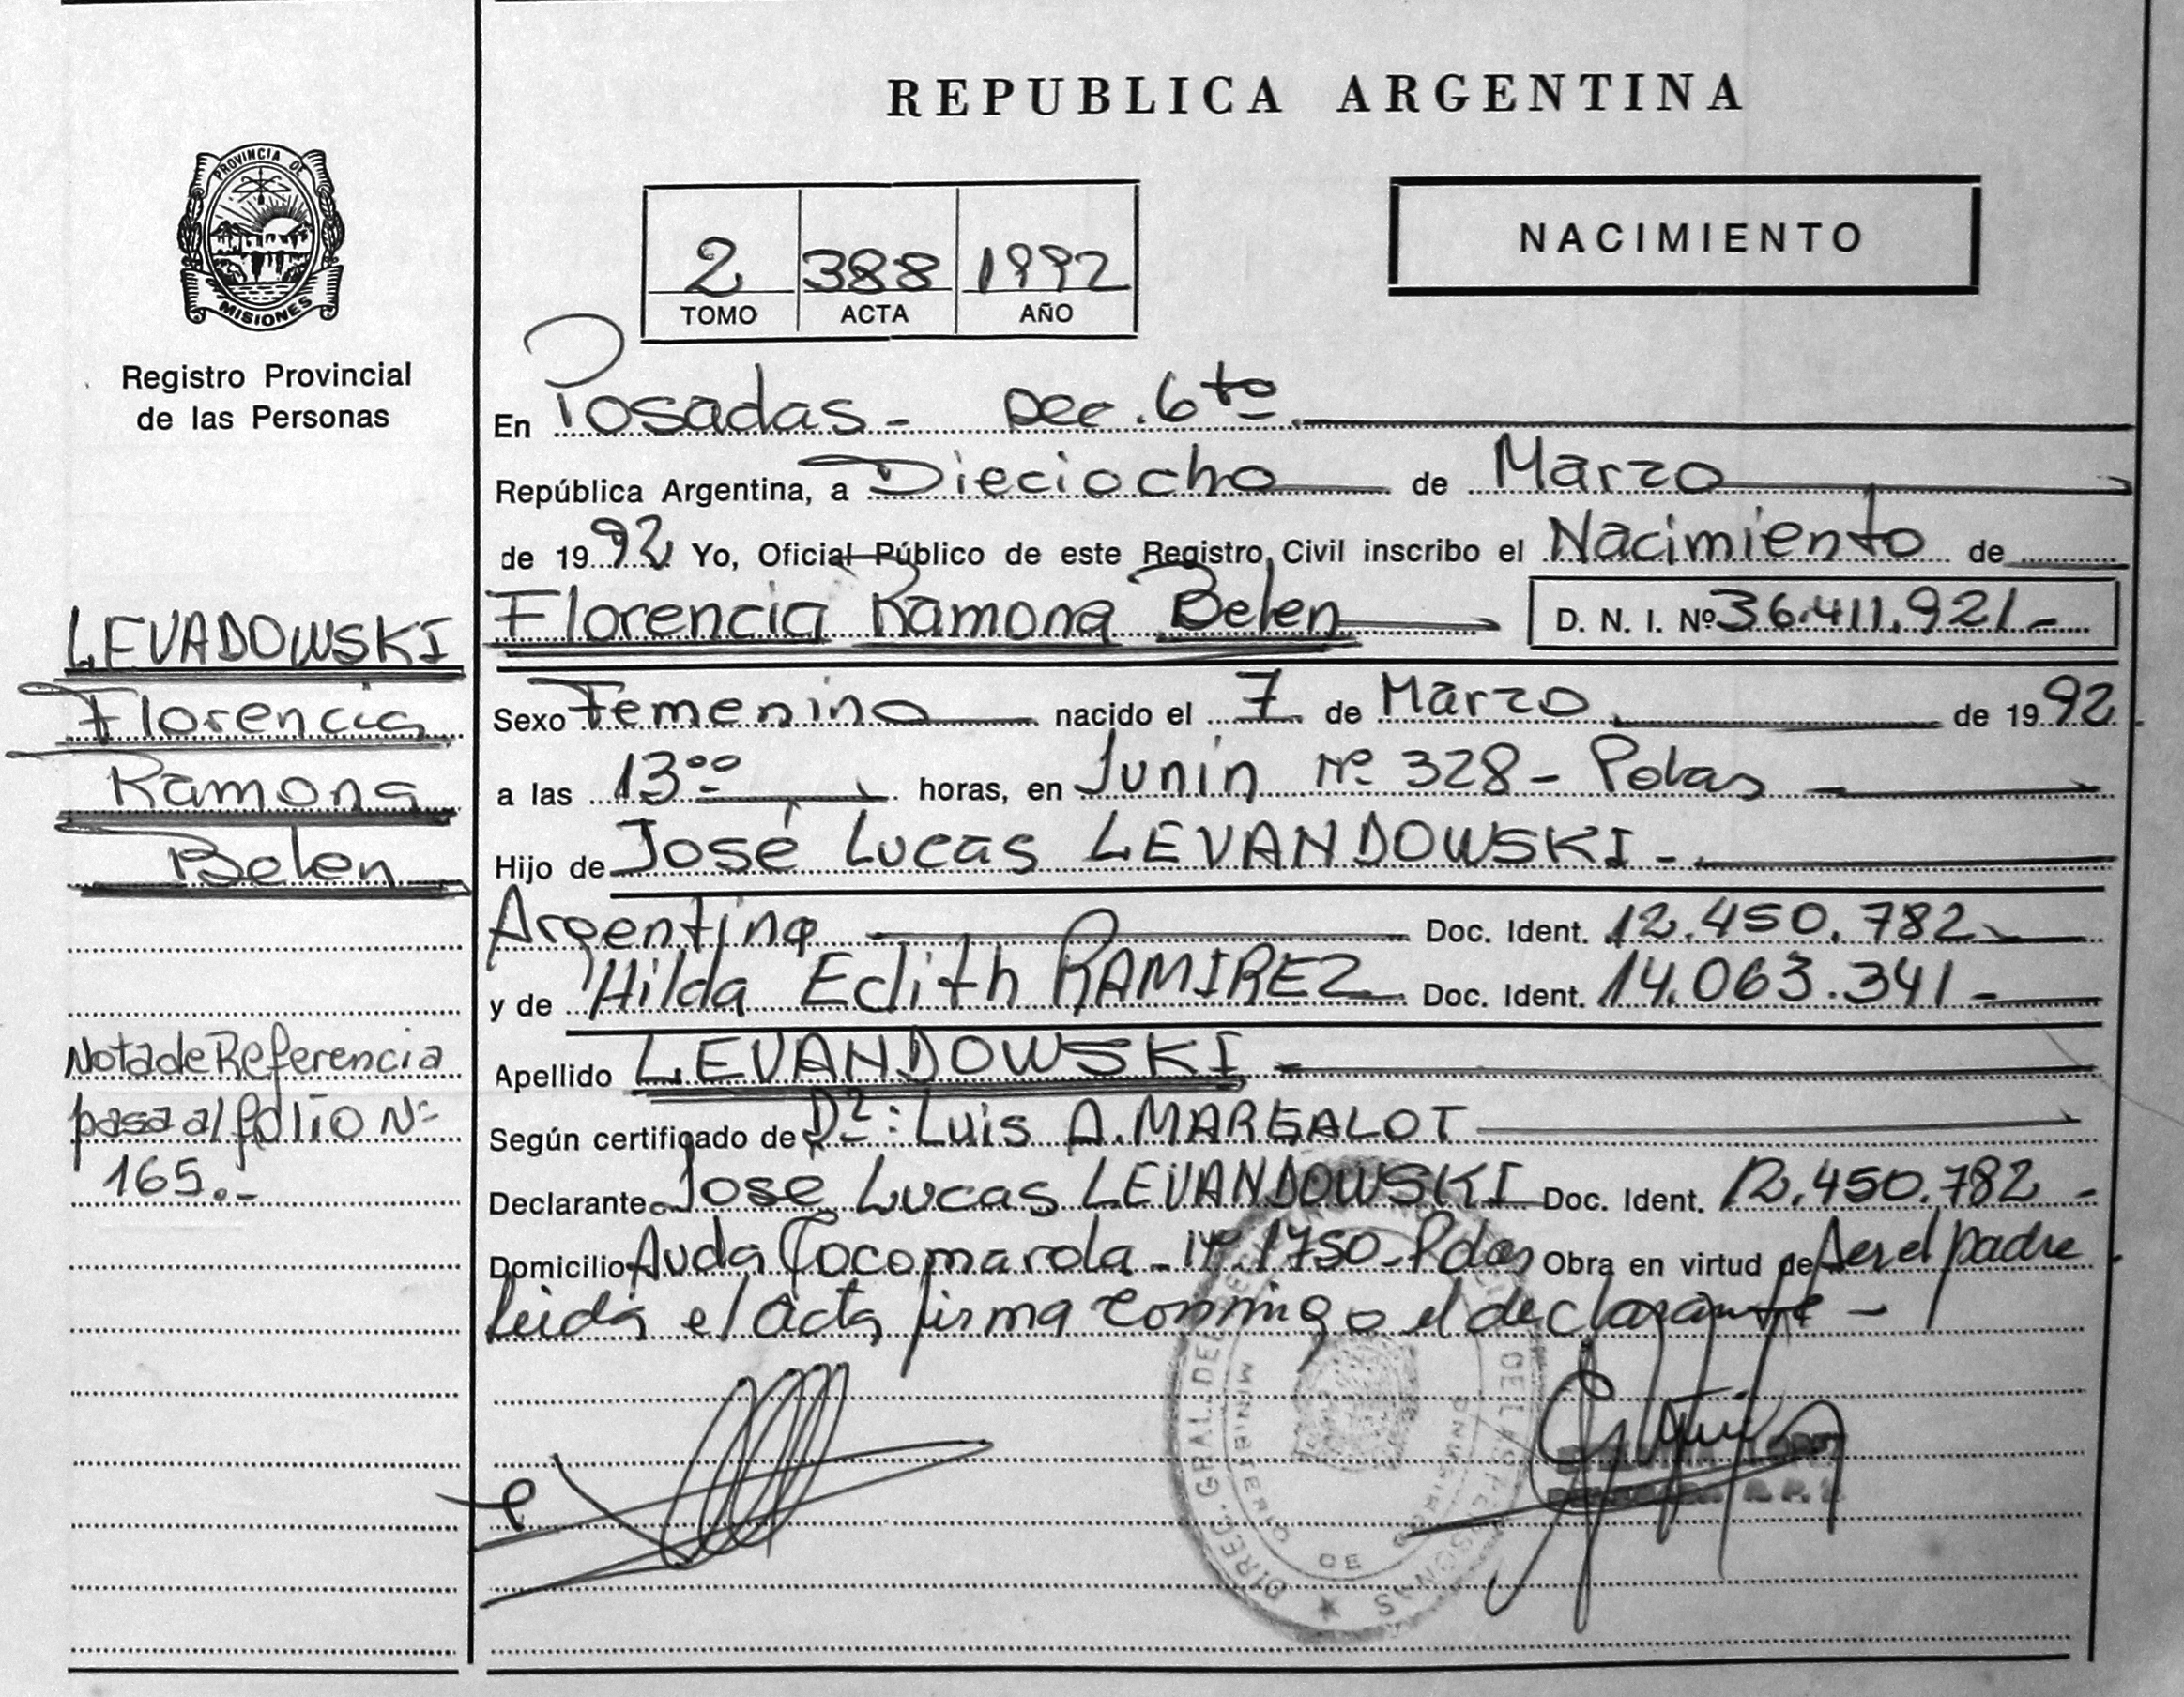 REPUBLICA ARGENTINA
PROVINCIA DE
MISIONES
Registro Provincial
de las Personas
NACIMIENTO
2 388 1992
TOMO ACTA AÑO
En Posadas - Dec. 6to
República Argentina, a Dieciocho de Marzo
de 1992 Yo, Oficial Público de este Registro Civil inscribo el Nacimiento de
Florencia Ramona Belen D. N. I. Nº 36.411.921.-
Sexo Femenino nacido el 7 de Marzo de 1992
a las 13°° horas, en Junin Nº 328 - Pdas
Hijo de José Lucas LEVANDOWSKI -
Argentino Doc. Ident. 12.450.782
y de Hilda Edith RAMIREZ Doc. Ident. 14.063.341 -
Apellido LEVANDOWSKI -
Según certificado de Dr: Luis A. MARGALOT
Declarante Jose Lucas LEVANDOWSKI Doc. Ident. 12.450.782 -
Domicilio Avda Cocomarola - Nº 1750 - Pdas Obra en virtud de Ser el padre
Leida el acta firma conmigo el declarante -
LEVADOWSKI
Florencia
Ramona
Belen
Nota de Referencia
pasa al folio Nº
165.-
DIREC. GRAL. DEL DE LAS PERSONAS
MINISTERIO DE